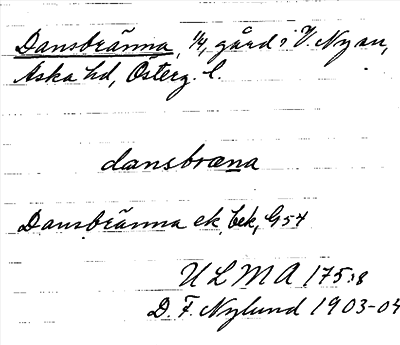 Dansbränna, 1/4, gård i V. Ny sn,
Aska hd, Österg. l.
dansbræna
Dansbränna ek, bek, G 54
ULMA 175:8
D. F. Nylund 1903-04